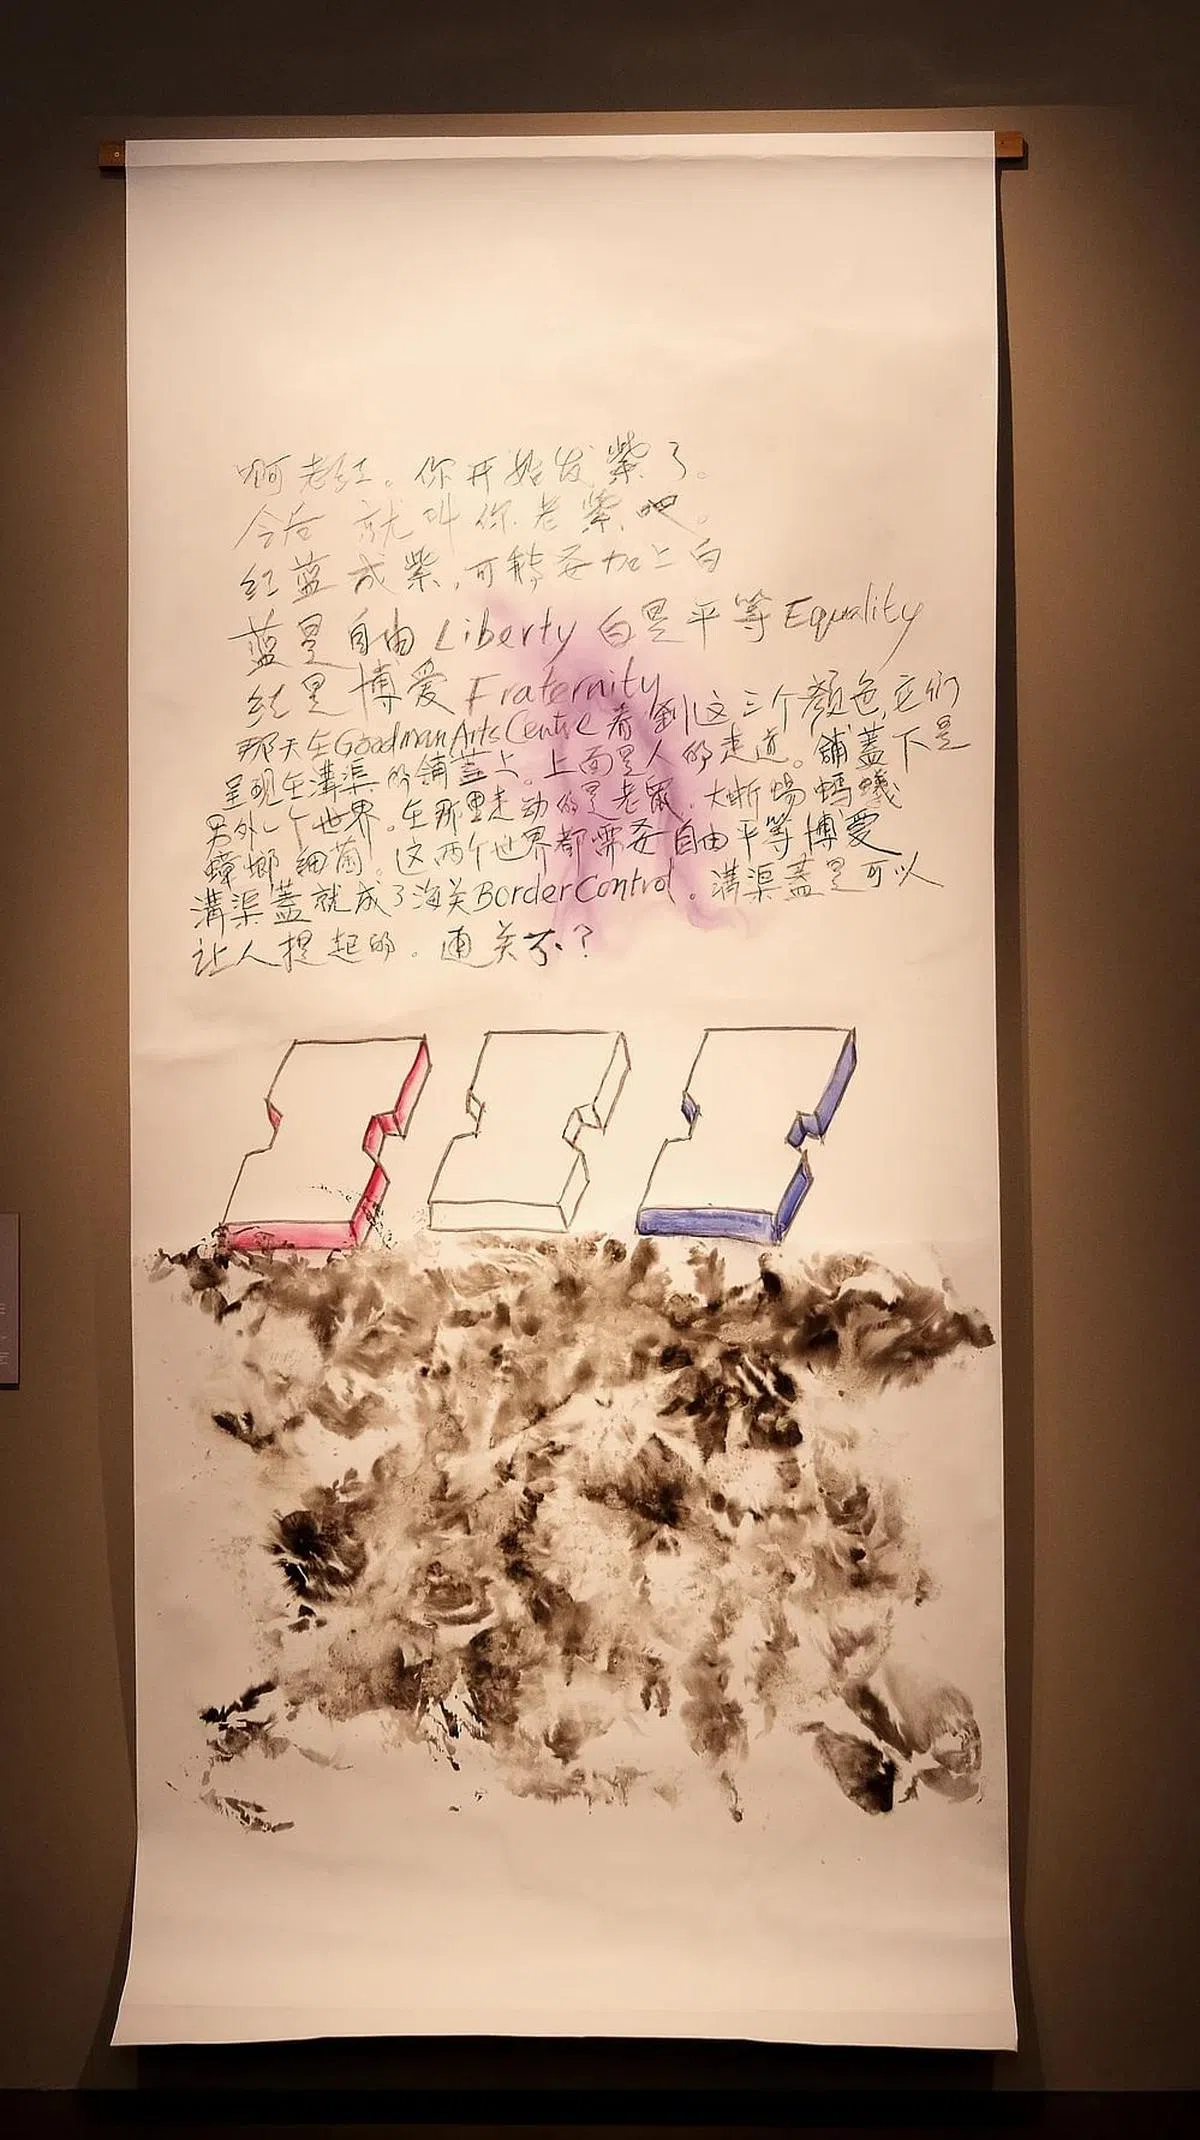 啊老红。你开始发紫了。
今后 就叫你老紫吧。
红蓝成紫,可能要加上白
蓝是自由 Liberty 白是平等 Equality
红是博爱 Fraternity
那天在Goodman Arts Centre 看到这三个颜色,它们
呈现在溝渠的铺蓋上。上面是人的走道。铺蓋下是
另外一个世界。在那里走动的是老鼠.大蜥蜴 蚂蟻
蟑螂 细菌。这两个世界都需要自由平等博爱
溝渠蓋就成了海关Border Control。溝渠蓋是可以
让人提起的。通关不?